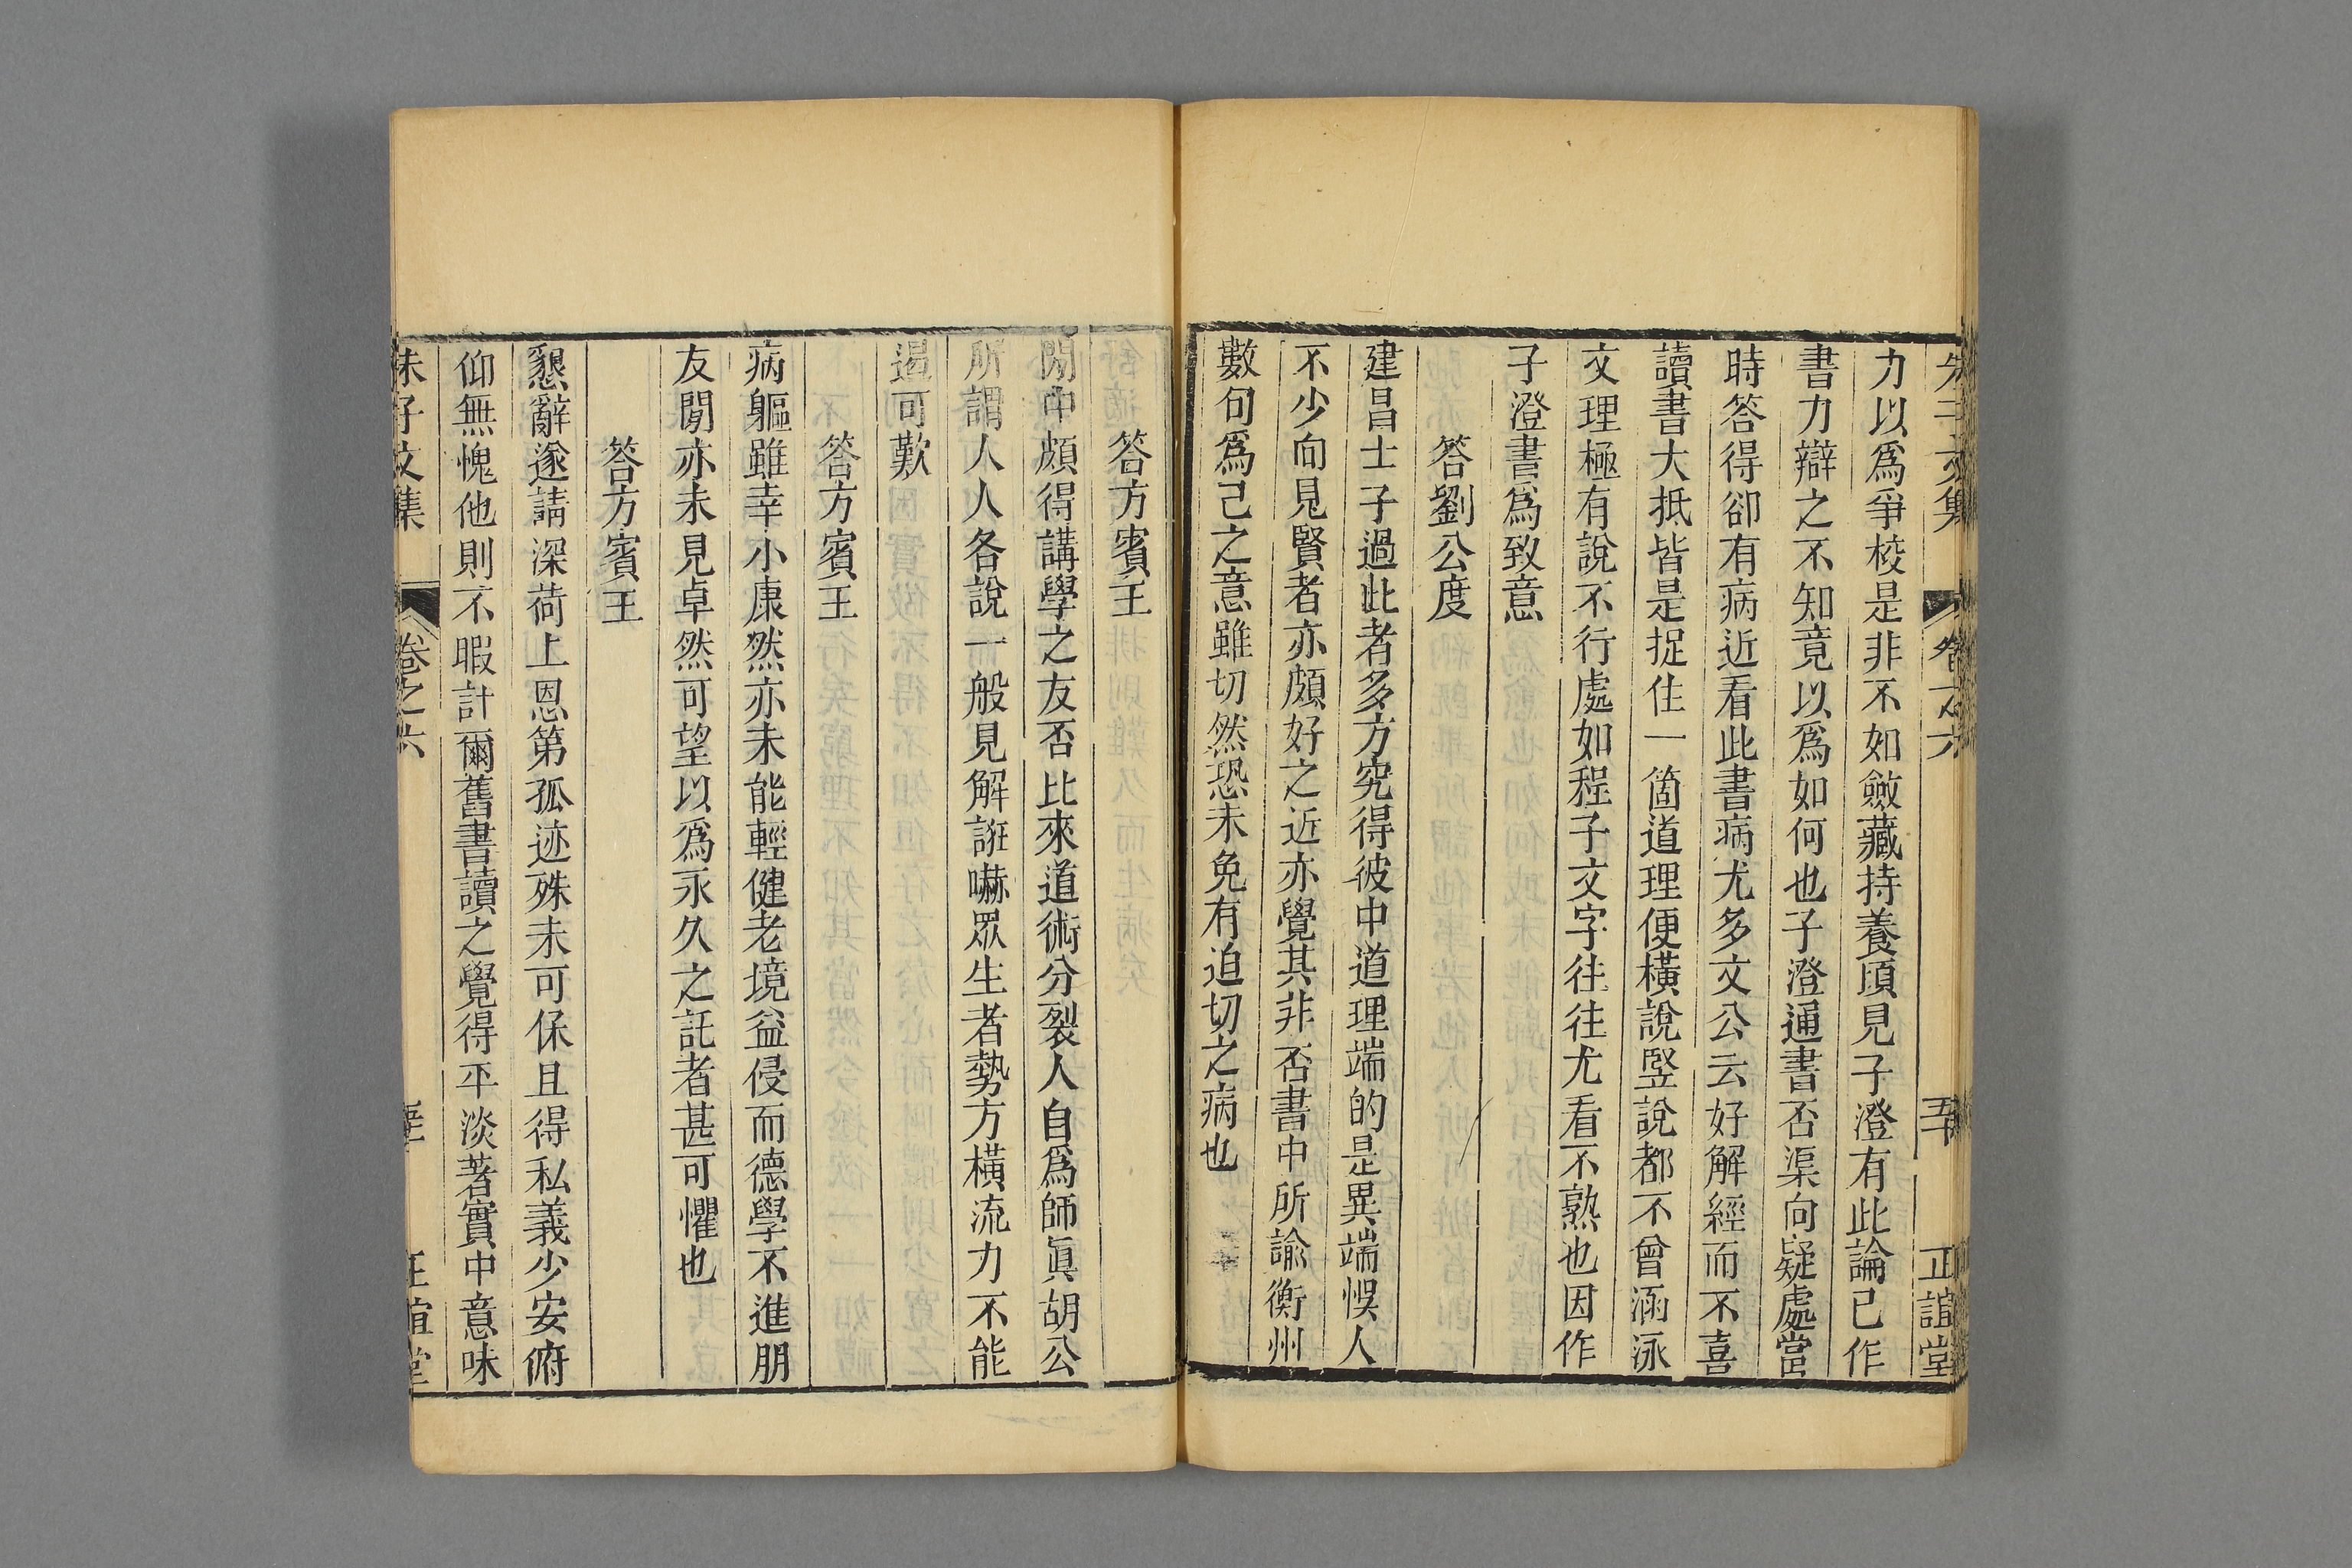 朱子文集 卷之六 五十 正誼堂
力以爲爭校是非不如斂藏持養頃見子澄有此論已作
書力辯之不知竟以爲如何也子澄通書否渠向疑處當
時答得卻有病近看此書病尤多文公云好解經而不喜
讀書大抵皆是捉住一箇道理便橫說竪說都不曾涵泳
文理極有說不行處如程子文字往往尤看不熟也因作
子澄書爲致意
答劉公度
建昌士子過此者多方究得彼中道理端的是異端悞人
不少向見賢者亦頗好之近亦覺其非否書中所諭衡州
數句爲己之意雖切然恐未免有迫切之病也
答方賓王
閒中頗得講學之友否比來道術分裂人自爲師眞胡公
所謂人人各說一般見解誑嚇眾生者勢方橫流力不能
遏可歎
答方賓王
病軀雖幸小康然亦未能輕健老境益侵而德學不進朋
友閒亦未見卓然可望以爲永久之託者甚可懼也
答方賓王
懇辭遂請深荷上恩第孤迹殊未可保且得私義少安俯
仰無愧他則不暇計爾舊書讀之覺得平淡著實中意味
朱子文集 卷之六 正誼堂